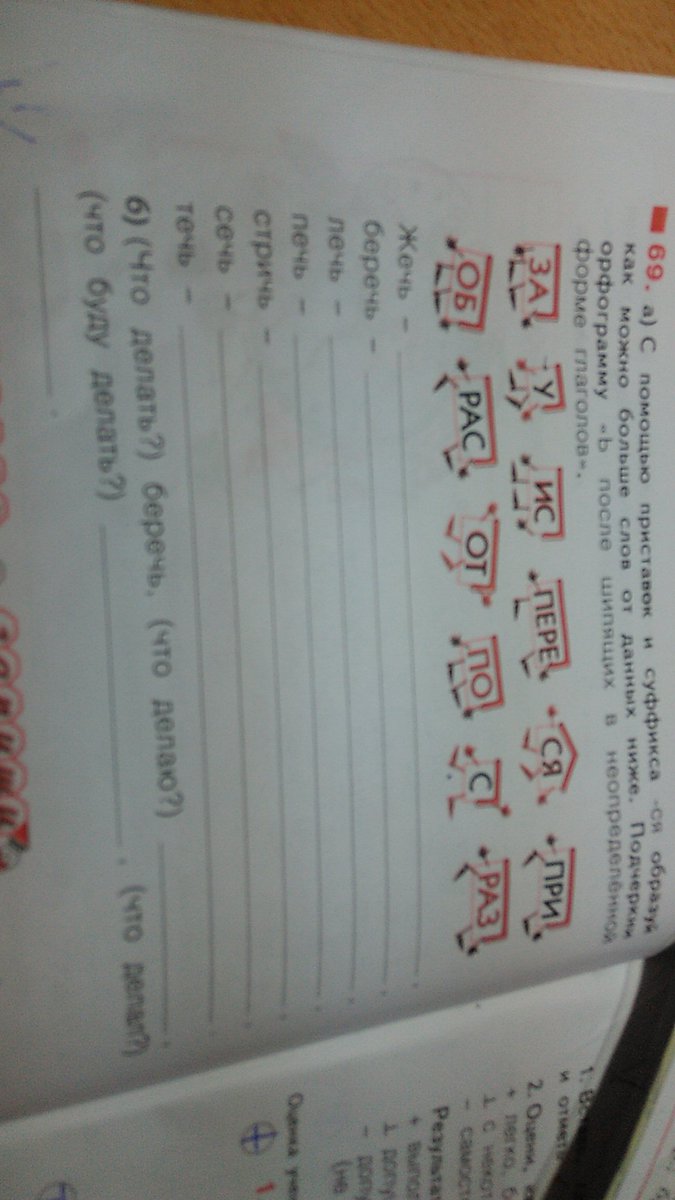 69. а) С помощью приставок и суффикса -ся образуй
как можно больше слов от данных ниже. Подчеркни
орфограмму «Ь после шипящих в неопределённой
форме глаголов».
ЗА У ИС ПЕРЕ СЯ ПРИ
ОБ РАС ОТ ПО С РАЗ
Жечь –
беречь –
лечь –
печь –
стричь –
сечь –
течь –
б) (Что делать?) беречь, (что делаю?)
(что буду делать?) , (что делал?)
2. Оцени,
Оценка
1